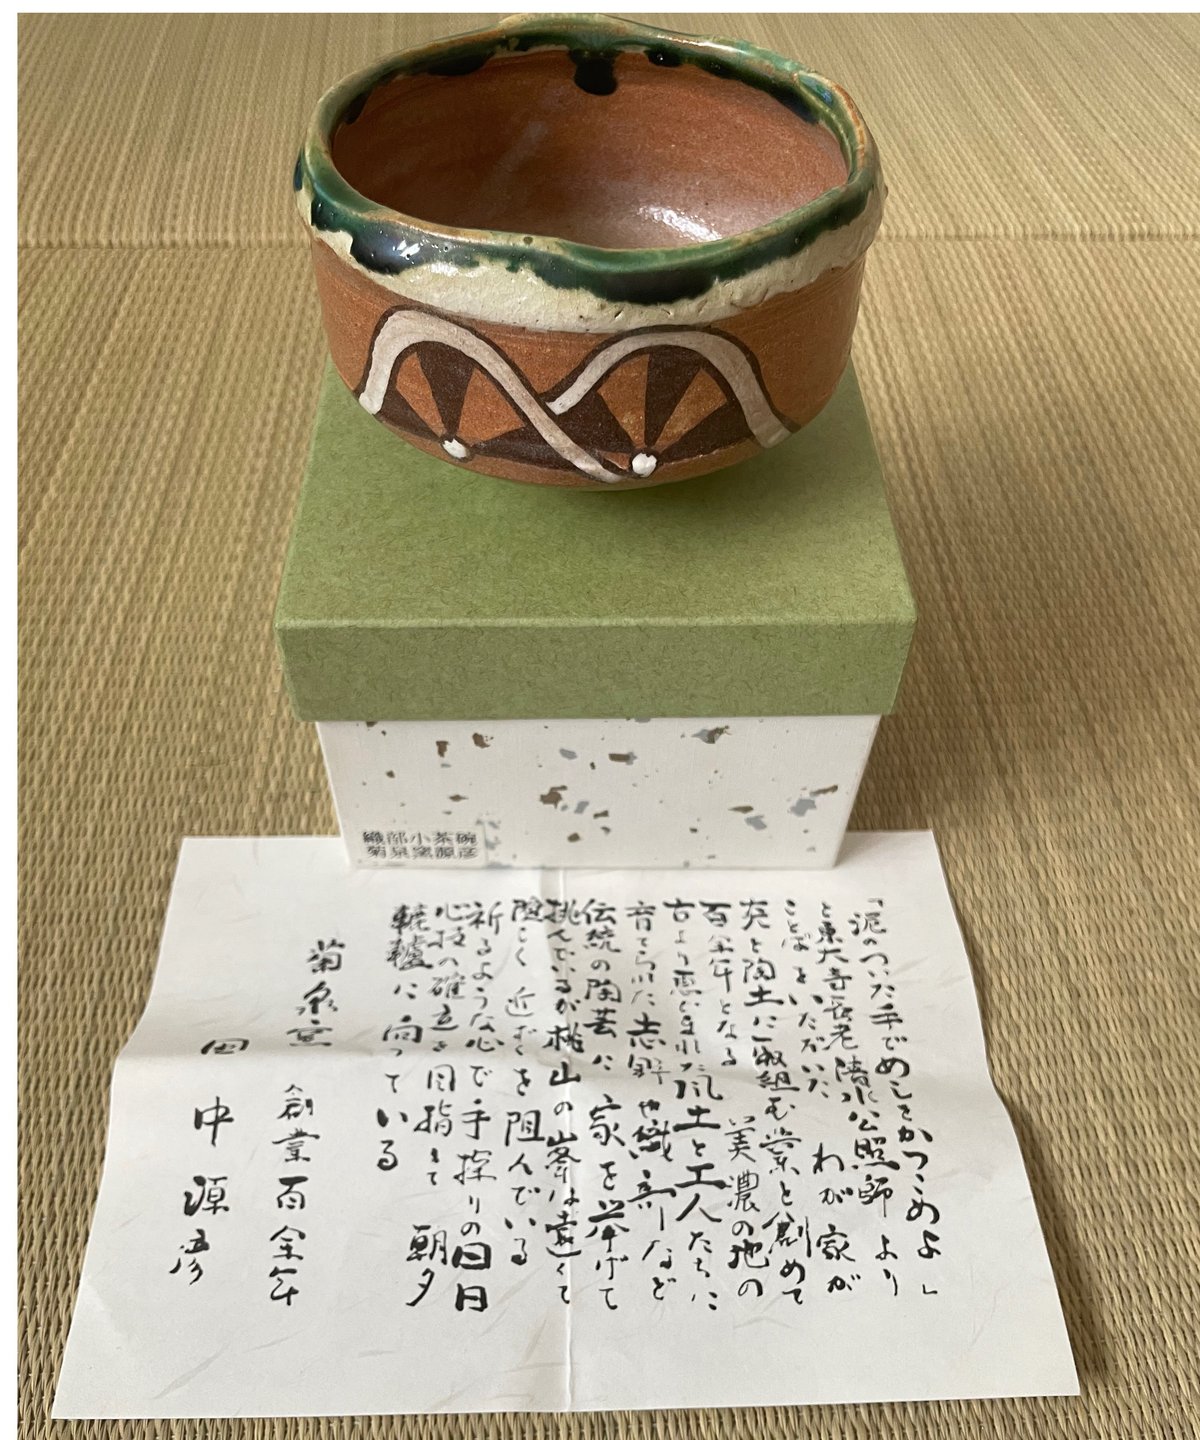 織部小茶碗
菊泉窯源彦
「泥のついた手でめしをかっこめよ」
と東大寺長老清水公照師より
ことばをいただいた わが家が
炎と陶土に取組む業を創めて
百余年となる 美濃の地の
古より恵ぐまれた風土と工人たちに
育てられた志野や織部など
伝統の陶芸に家を挙げて
挑んでいるが桃山の峯は遠くて
険しく近ずくを阻んでいる
祈るような心で手探りの日日
心技の確立を目指して朝夕
轆轤に向っている
菊泉窯
創業百余年
田中源彦